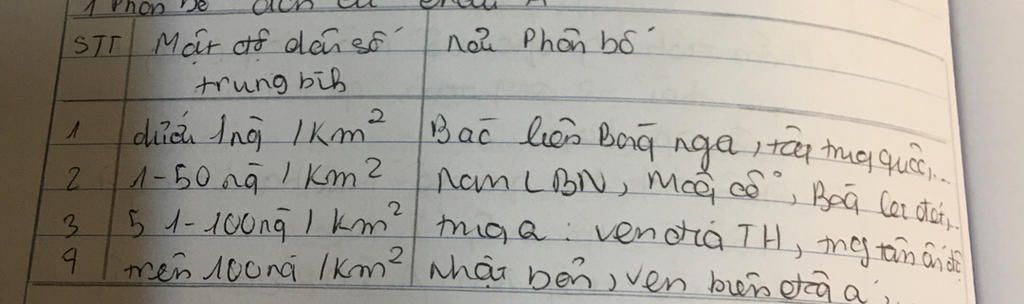 1 Phân bố dân cư châu Á
STT Mật độ dân số nơi Phân bố
trung bìh
1 dưới 1ng /Km² Bắc liên Bang nga, tây trug quốc,...
2 1-50 ng / Km² Nam LBN, Mông cổ, Bađ
3 51-100ng / km² trug a: ven địa TH, trug tân ấn độ
4 trên 100ng /Km² Nhật bản, ven biển đôg a,